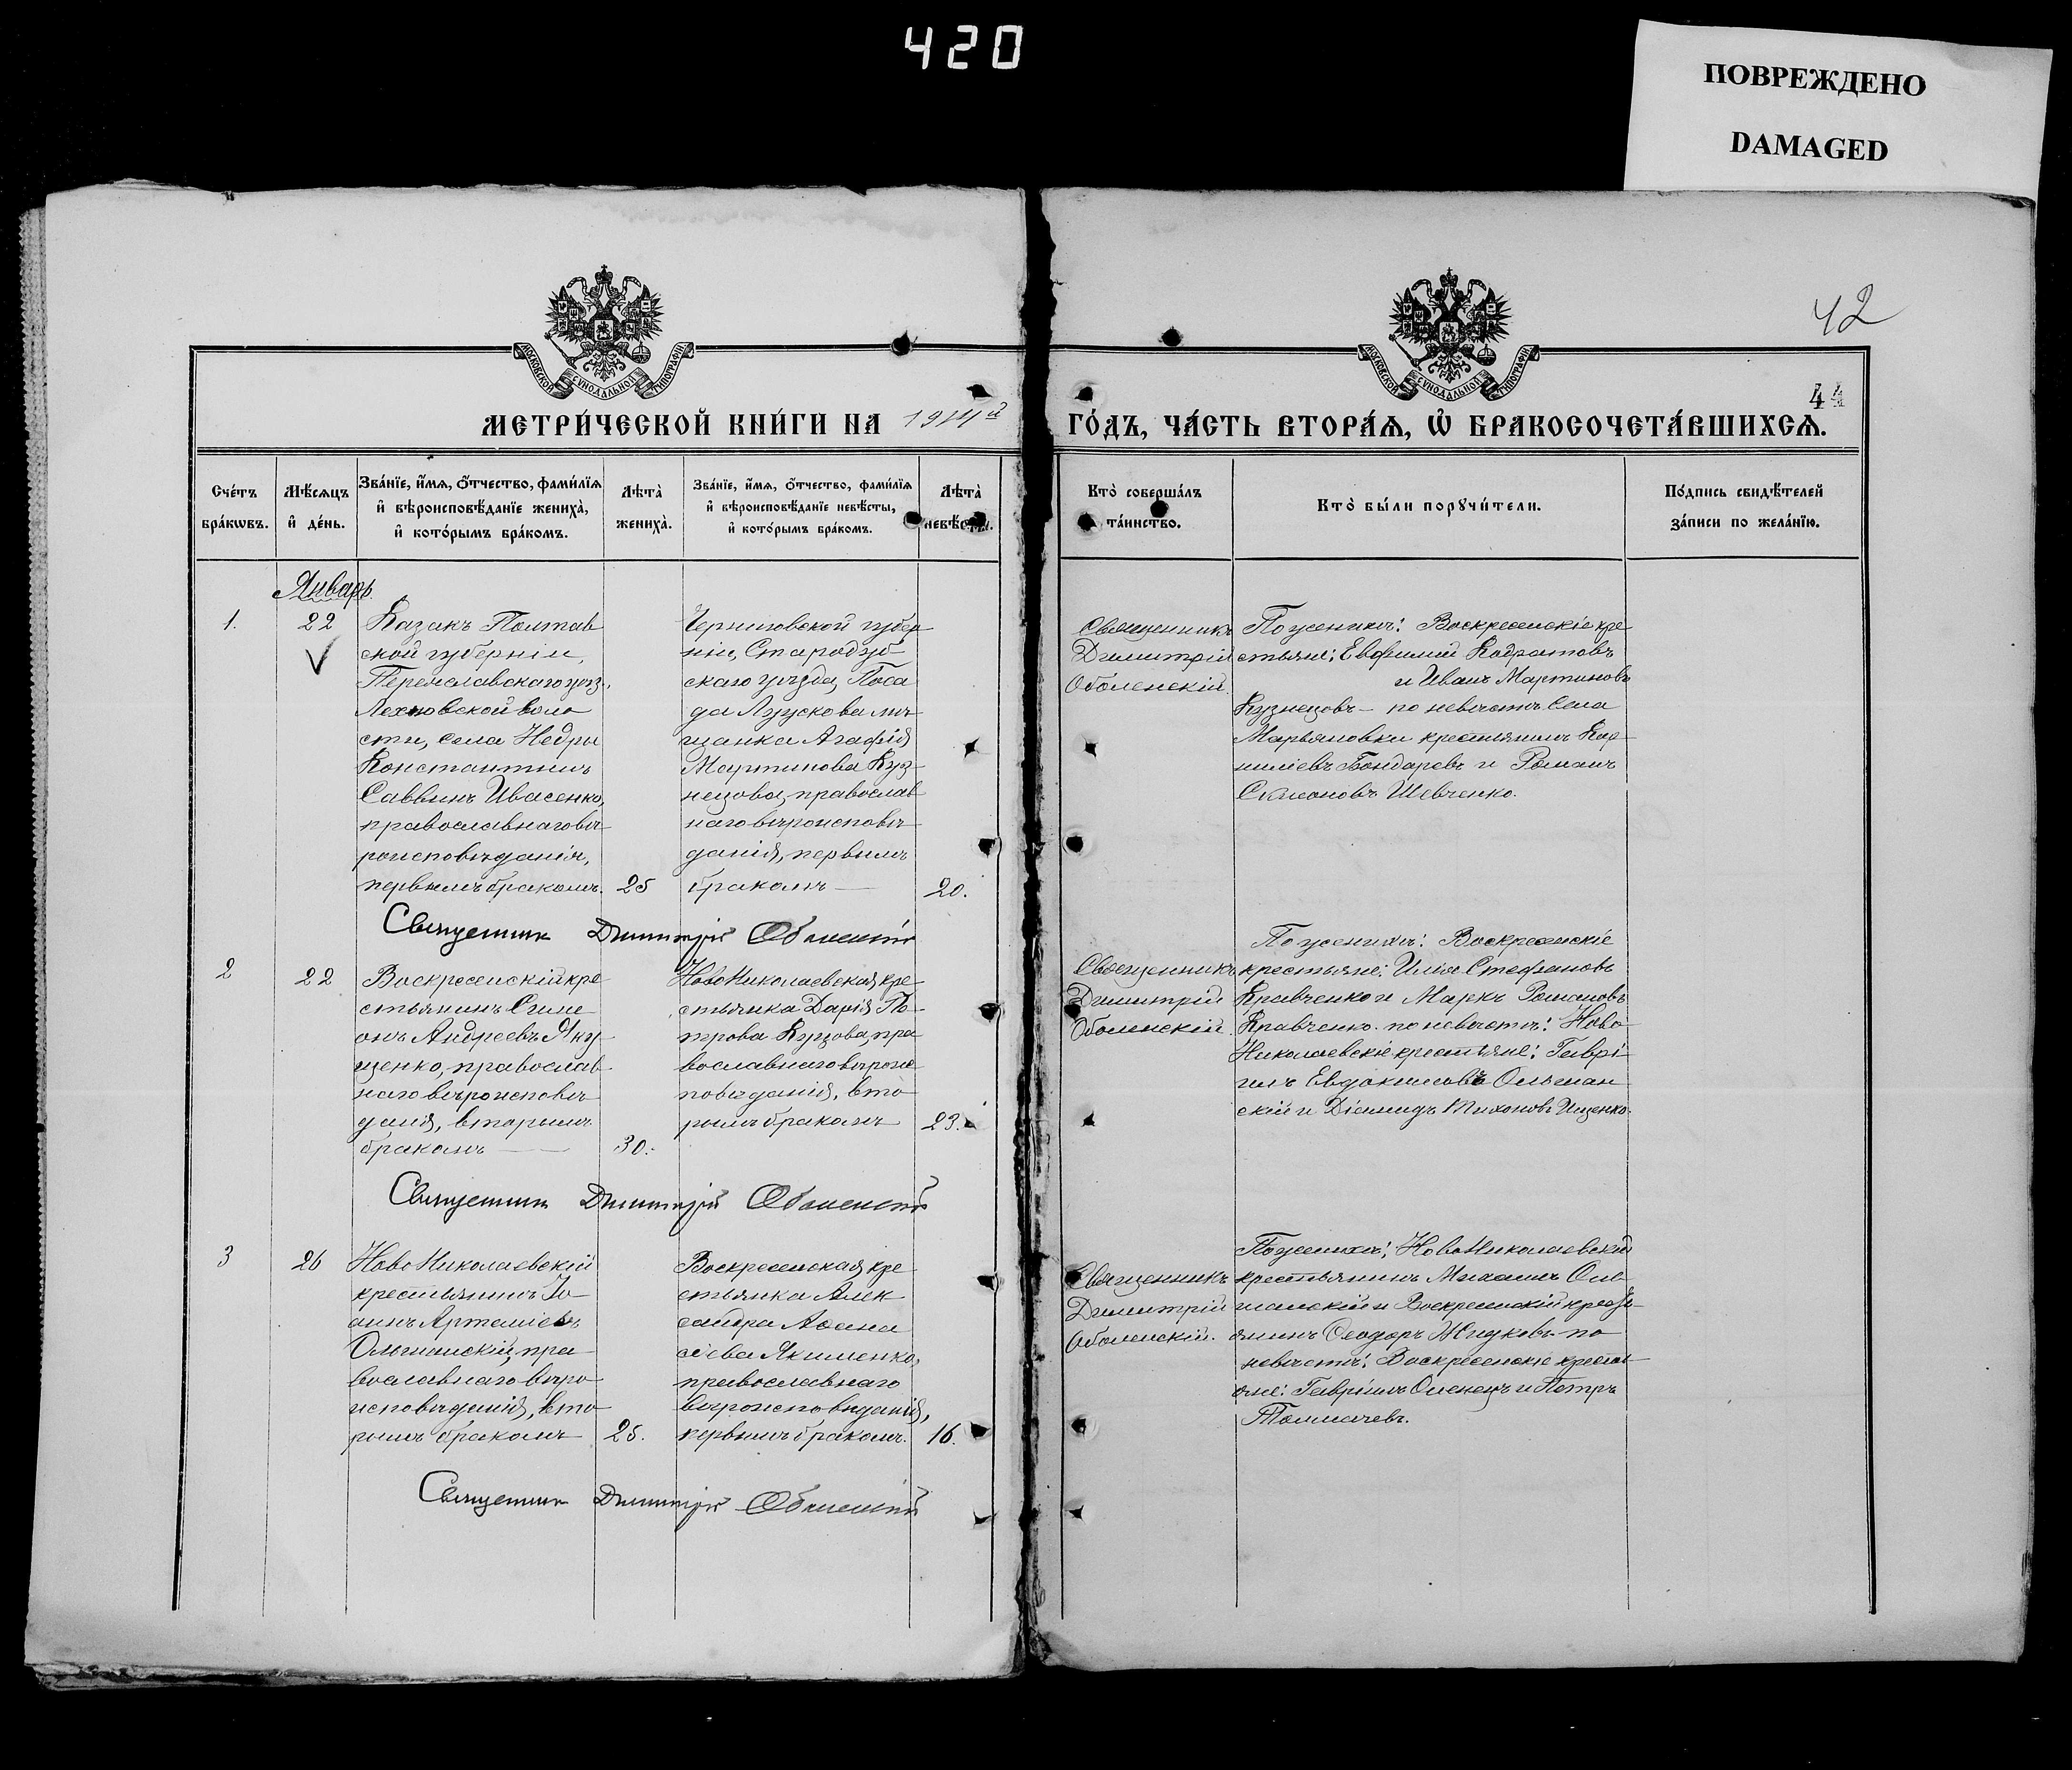 420
ПОВРЕЖДЕНО
DAMAGED
42
44
МОСКОВСКОЙ СѴНОДАЛЬНОЙ ТИПОГРАФІИ
МОСКОВСКОЙ СѴНОДАЛЬНОЙ ТИПОГРАФІИ
МЕТРИ́ЧЕСКОЙ КНИ́ГИ НА 1914й ГО́ДЪ, ЧА́СТЬ ВТОРА́Ѧ, Ѡ҆ БРАКОСОЧЕТА́ВШИХСѦ.
Сче́тъ
бра́кѡвъ.
Мѣ́сѧцъ
и҆ де́нь.
Зва́нїе, и҆́мѧ, ѻ҆́тчество, фами́лїѧ
и҆ вѣроисповѣ́данїе жениха̀,
и҆ кото́рымъ бра́комъ.
Лѣта̀
жениха̀.
Зва́нїе, и҆́мѧ, ѻ҆́тчество, фами́лїѧ
и҆ вѣроисповѣ́данїе невѣ́сты,
и҆ кото́рымъ бра́комъ.
Лѣта̀
невѣ́сты.
Кто̀ соверша́лъ
та́инство.
Кто̀ бы́ли порꙋчи́тели.
По́дпись свидѣ́телей
за́писи по жела́нїю.
Январь
1.
22
Казакъ Полтав
ской губерніи,
Переяславскаго уѣз.
Лехновской воло
сти, села Недры
Константинъ
Саввинъ Ивасенко,
православнаго вѣ
роисповѣданія,
первымъ бракомъ. 25
Черниговской губер
ніи, Стародуб
скаго уѣзда, Поса
да Лужкова мѣ
щанка Агафія
Мартинова Куз
нецова, православ
наго вѣроисповѣ
данія, первымъ
бракомъ — 20.
Священникъ
Димитрій
Оболенскій.
По женихѣ: Воскресенскіе кре
стьяне: Евфимій Кодратовъ
и Иванъ Мартиновъ
Кузнецовъ — по невѣстѣ села
Марьяновки крестьянинъ Кор
нилієвъ Бондаревъ и Романъ
Симоновъ Шевченко.
Священник Димитрій Оболенскій
2
22
Воскресенскій кре
стьянинъ Симе
онъ Андреевъ Яку
щенко, православ
наго вѣроисповѣ
данія, вторымъ
бракомъ — 30.
НовоНиколаевская кре
стьянка Дарія Пе
трова Курзова, пра
вославнаго вѣроис
повѣданія, вто
рымъ бракомъ 23.
Священникъ
Димитрій
Оболенскій
По женихѣ: Воскресенскіе
крестьяне: Илія Стефановъ
Кравченко и Маркъ Романовъ
Кравченко. по невѣстѣ: Ново
Николаевскіе крестьяне: Гаврі
илъ Евдокимовъ Ольшан
скій и Діомидъ Тихоновъ Ищенко.
Священник Димитрій Оболенскій
3
26
НовоНиколаевскій
крестьянинъ Іо
аннъ Артеміевъ
Ольшанскій, пра
вославнаго вѣро
исповѣданія, вто
рымъ бракомъ 25.
Воскресенская кре
стьянка Алек
сандра Аѳана
сіева Якименко,
православнаго
вѣроисповѣданія,
первымъ бракомъ. 16.
Священникъ
Димитрій
Оболенскій.
По женихѣ: НовоНиколаевскій
крестьянинъ Михаилъ Оль
шанскій и Воскресенскій кресть
янинъ Ѳеодоръ Жидковъ. по
невѣстѣ: Воскресенскіе кресть
яне: Гавріилъ Оленецъ и Петръ
Толмачевъ.
Священник Димитрій Оболенскій